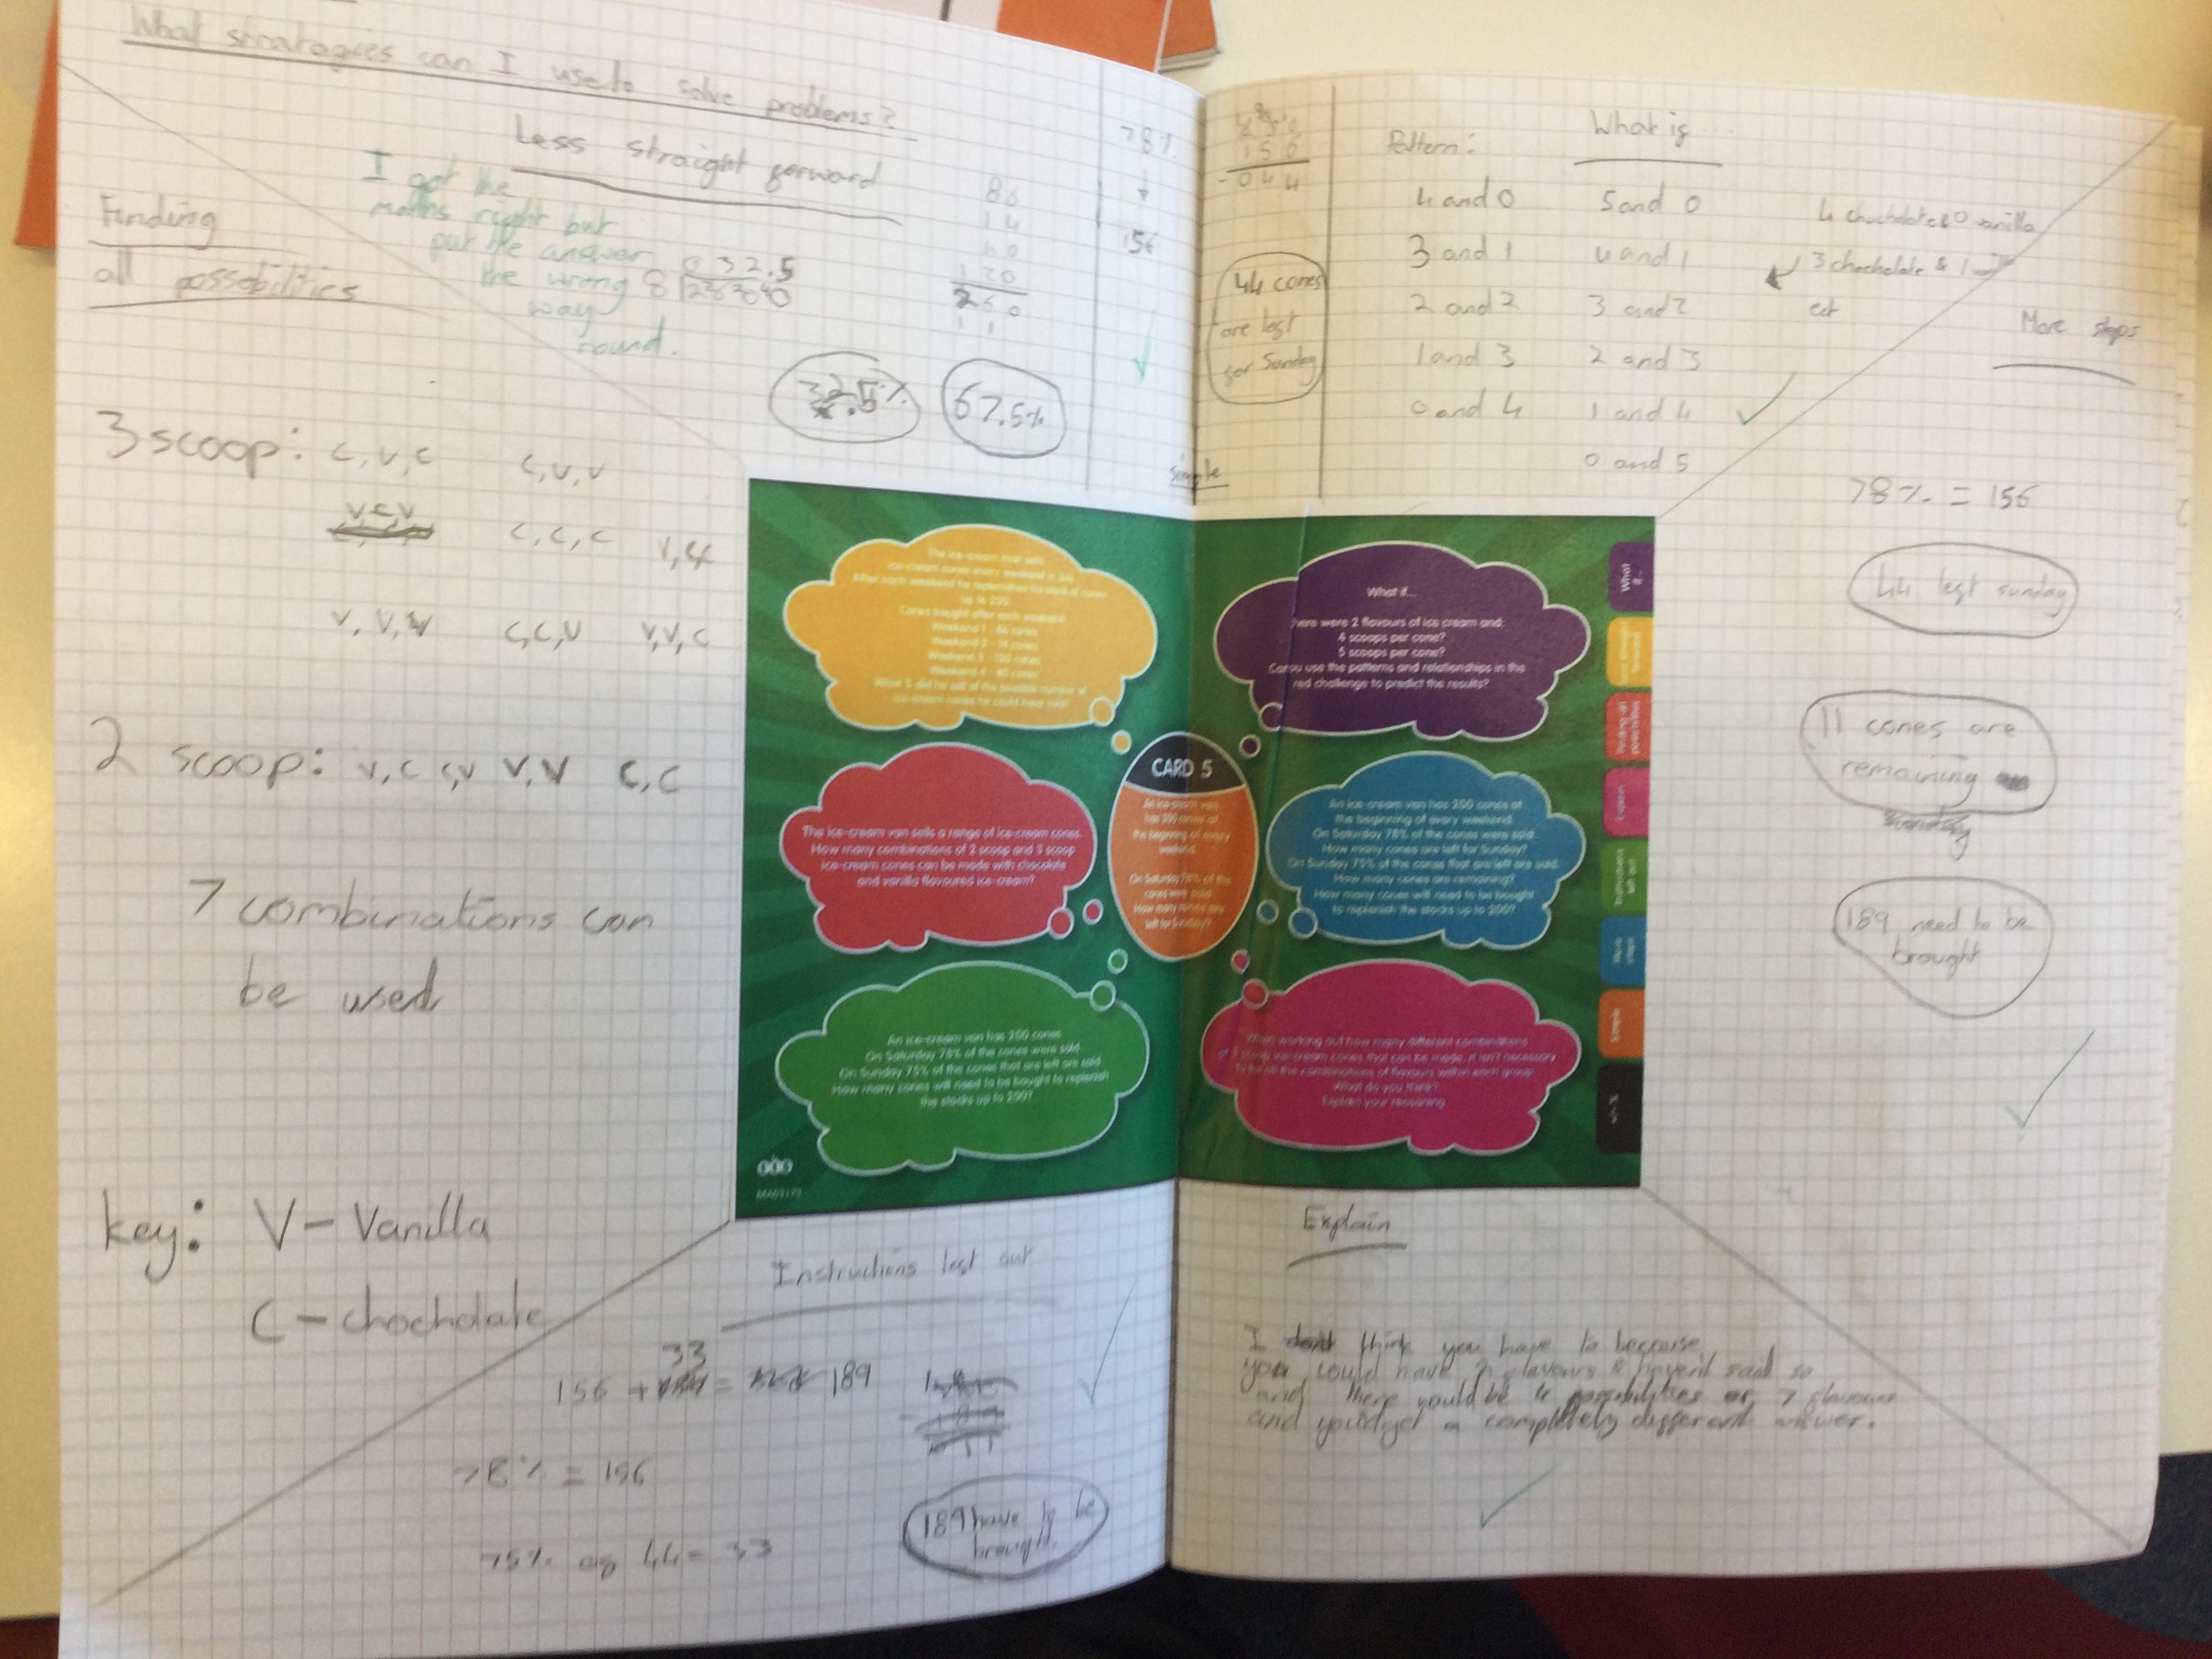 What stratagies can I use to solve problems?
Less straight forward
I got the
maths right but
put the answer
the wrong
way
round.
86
14
120
260
1 1
032.5
8
32.5%
67.5%
78%
156
Finding
all possobilities
3 scoop: C, V, C C, V, V
V C V C, C, C
V, V, V C, C, V V, V, C
2 scoop: V, C C, V V, V C, C
7 combinations can
be used
key: V - Vanilla
C - chocholate
simple
150
- 044
44 cones
are lest
for Sunday
What is ...
Pattern:
4 and 0 5 and 0
3 and 1 4 and 1
2 and 2 3 and 2
1 and 3 2 and 3
0 and 4 1 and 4
0 and 5
4 chocholate & 0 vanilla
3 chocholate & 1
ect
More steps
78% = 156
44 lest sunday
11 cones are
remaining
sunday
189 need to be
brought
The ice-cream man sells
ice-cream cones every weekend in July.
After each weekend he replenishes his stock of cones
up to 200.
Cones bought after each weekend:
Weekend 1 - 86 cones
Weekend 2 - 14 cones
Weekend 3 - 120 cones
Weekend 4 - 40 cones
What % did he sell of the possible number of
ice-cream cones he could have sold?
What if...
there were 2 flavours of ice cream and:
4 scoops per cone?
5 scoops per cone?
Can you use the patterns and relationships in the
red challenge to predict the results?
CARD 5
An ice-cream van
has 200 cones at
the beginning of every
weekend.
On Saturday 78% of the
cones were sold.
How many cones are
left for Sunday?
The ice-cream van sells a range of ice-cream cones.
How many combinations of 2 scoop and 3 scoop
ice-cream cones can be made with chocolate
and vanilla flavoured ice-cream?
An ice-cream van has 200 cones at
the beginning of every weekend.
On Saturday 78% of the cones were sold.
How many cones are left for Sunday?
On Sunday 75% of the cones that are left are sold.
How many cones are remaining?
How many cones will need to be bought
to replenish the stocks up to 200?
An ice-cream van has 200 cones.
On Saturday 78% of the cones were sold.
On Sunday 75% of the cones that are left are sold.
How many cones will need to be bought to replenish
the stocks up to 200?
When working out how many different combinations
of 3 scoop ice-cream cones that can be made, it isn't necessary
to list all the combinations of flavours within each group.
What do you think?
Explain your reasoning.
What
if...
Finding all
possibilities
Explain
Instructions
left out
More
steps
Simple
Instructions lest out
156 + 33 = 189
78% = 156
75% og 44 = 33
189 have to be
brought.
Explain
I think you have to because
you could have flavours & haven't said so
and there would be 4 possibilities or 7 flavours
and you'd get a completely different answer.